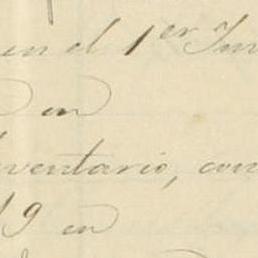 en el 1er In
en
ventario, con
19 en